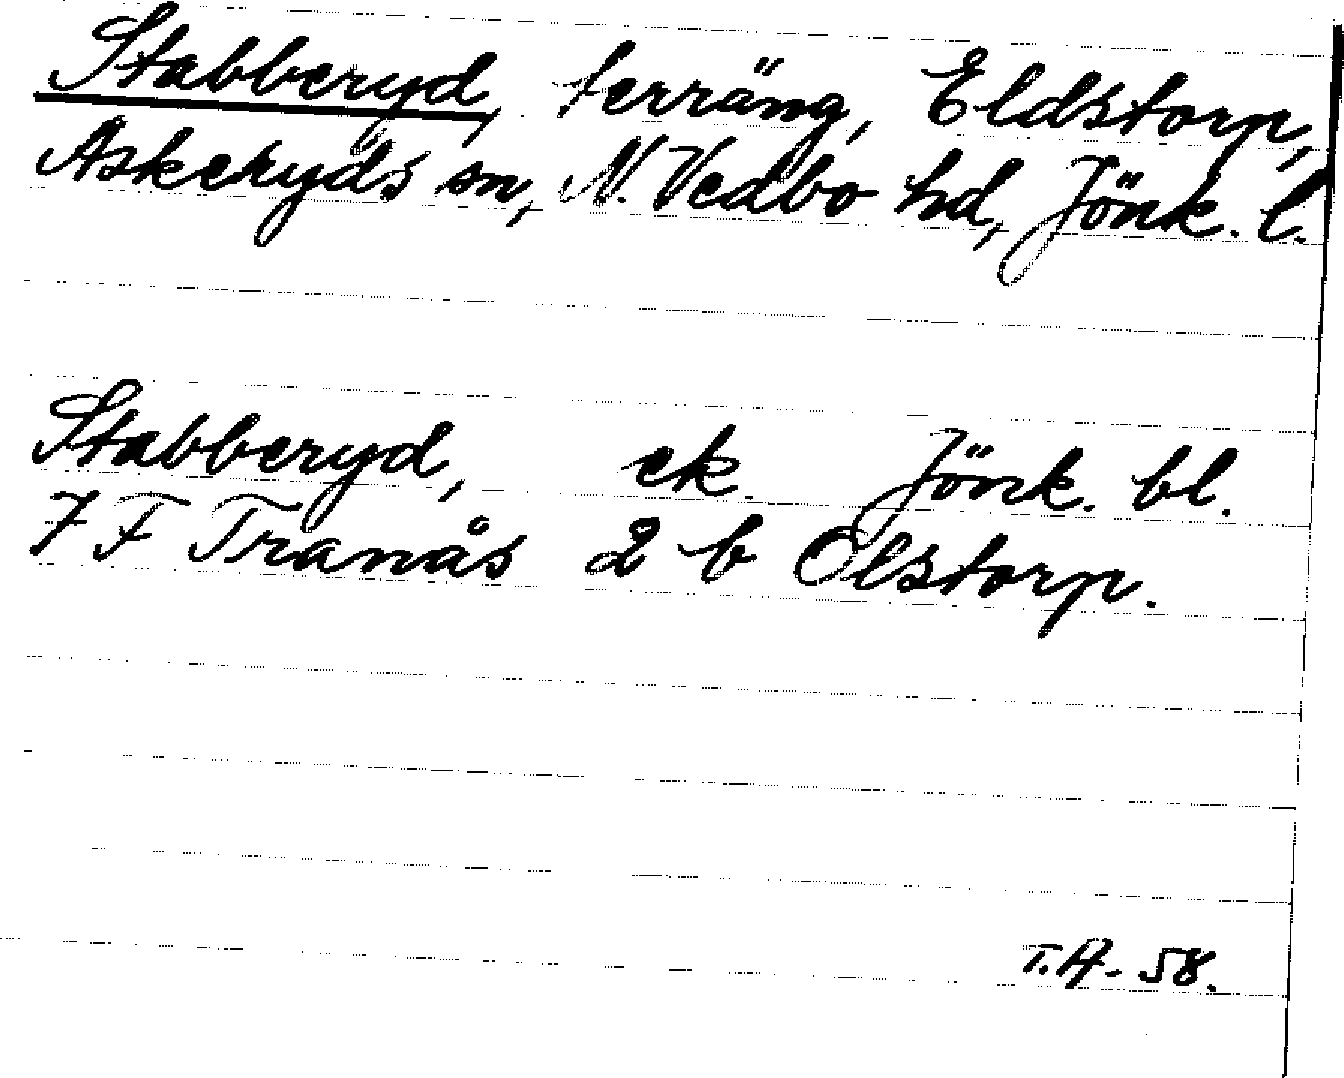 Stabberyd, terräng, Eldstorp,
Askeryds sn, N. Vedbo hd, Jönk. l.
Stabberyd, ek. Jönk. bl.
7 F Tranås 2 b Olstorp.
T.A. - 58.